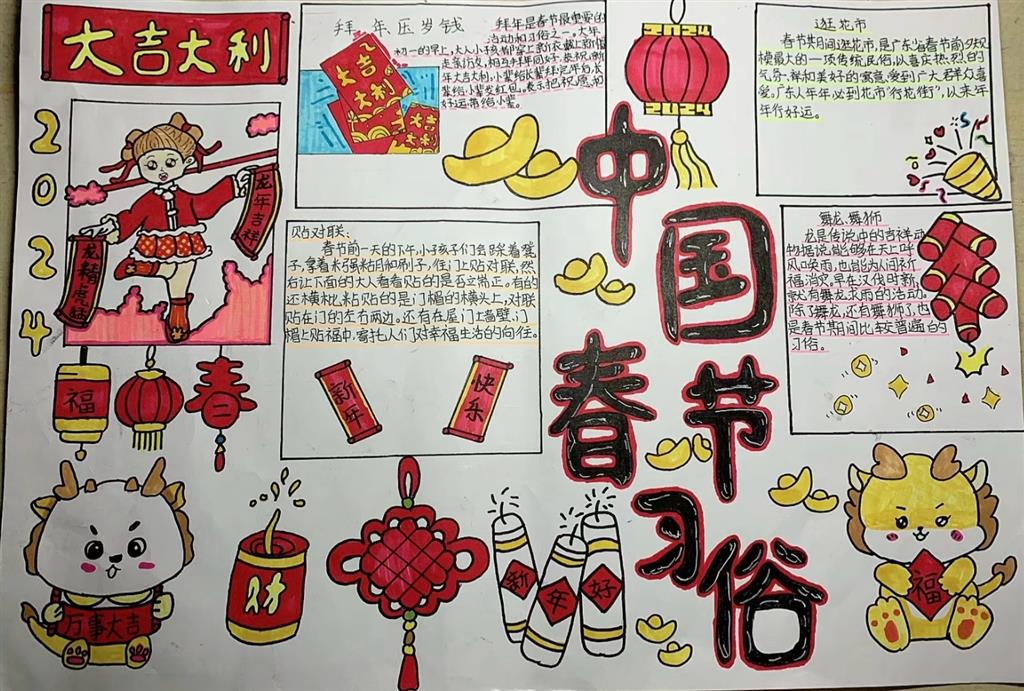 大吉大利
2024
龙年吉祥
龙精虎猛
福
春
拜年压岁钱
拜年是春节最重要的
活动和习俗之一。大年
初一的早上,大人小孩都穿上新衣戴上新帽
走亲访友,相互拜年问好,恭祝新
年大吉大利,小辈给长辈拜完年后,长
辈给小辈发红包,表示把祝愿和
好运带给小辈。
大吉
大利
大吉
大吉
2024
2024
逛花市
春节其月间逛花市,是广东省春节前夕规
模最大的一项传统民俗,以喜庆热烈的
气分,祥和美好的寓意,受到广大君羊众喜
爱。广东人年年必到花市“行花街”,以来年
年行好运。
贴对联、
春节前一天的下午,小孩子们会踩着凳
子,拿着米强米粘贴和刷子,往门上贴对联,然
后让下面的大人看看贴的是否立端正。有的
还横批,粘贴的是门楣的横头上,对联
贴在门的左右两边。还有在屋门上墙壁、门
楣上贴福字,寄托人们对幸福生活的向往。
新年
快乐
舞龙、舞狮
龙是传说中的吉祥动
物据说能够在天上呼
风口唤雨,也能为人间祈
福消灾,早在汉代时期,
就有舞龙求雨的活动。
除了舞龙,还有舞狮了,也
是春节期间比较普遍的
习俗。
中国
春节
习俗
万事大吉
财
新年好
福